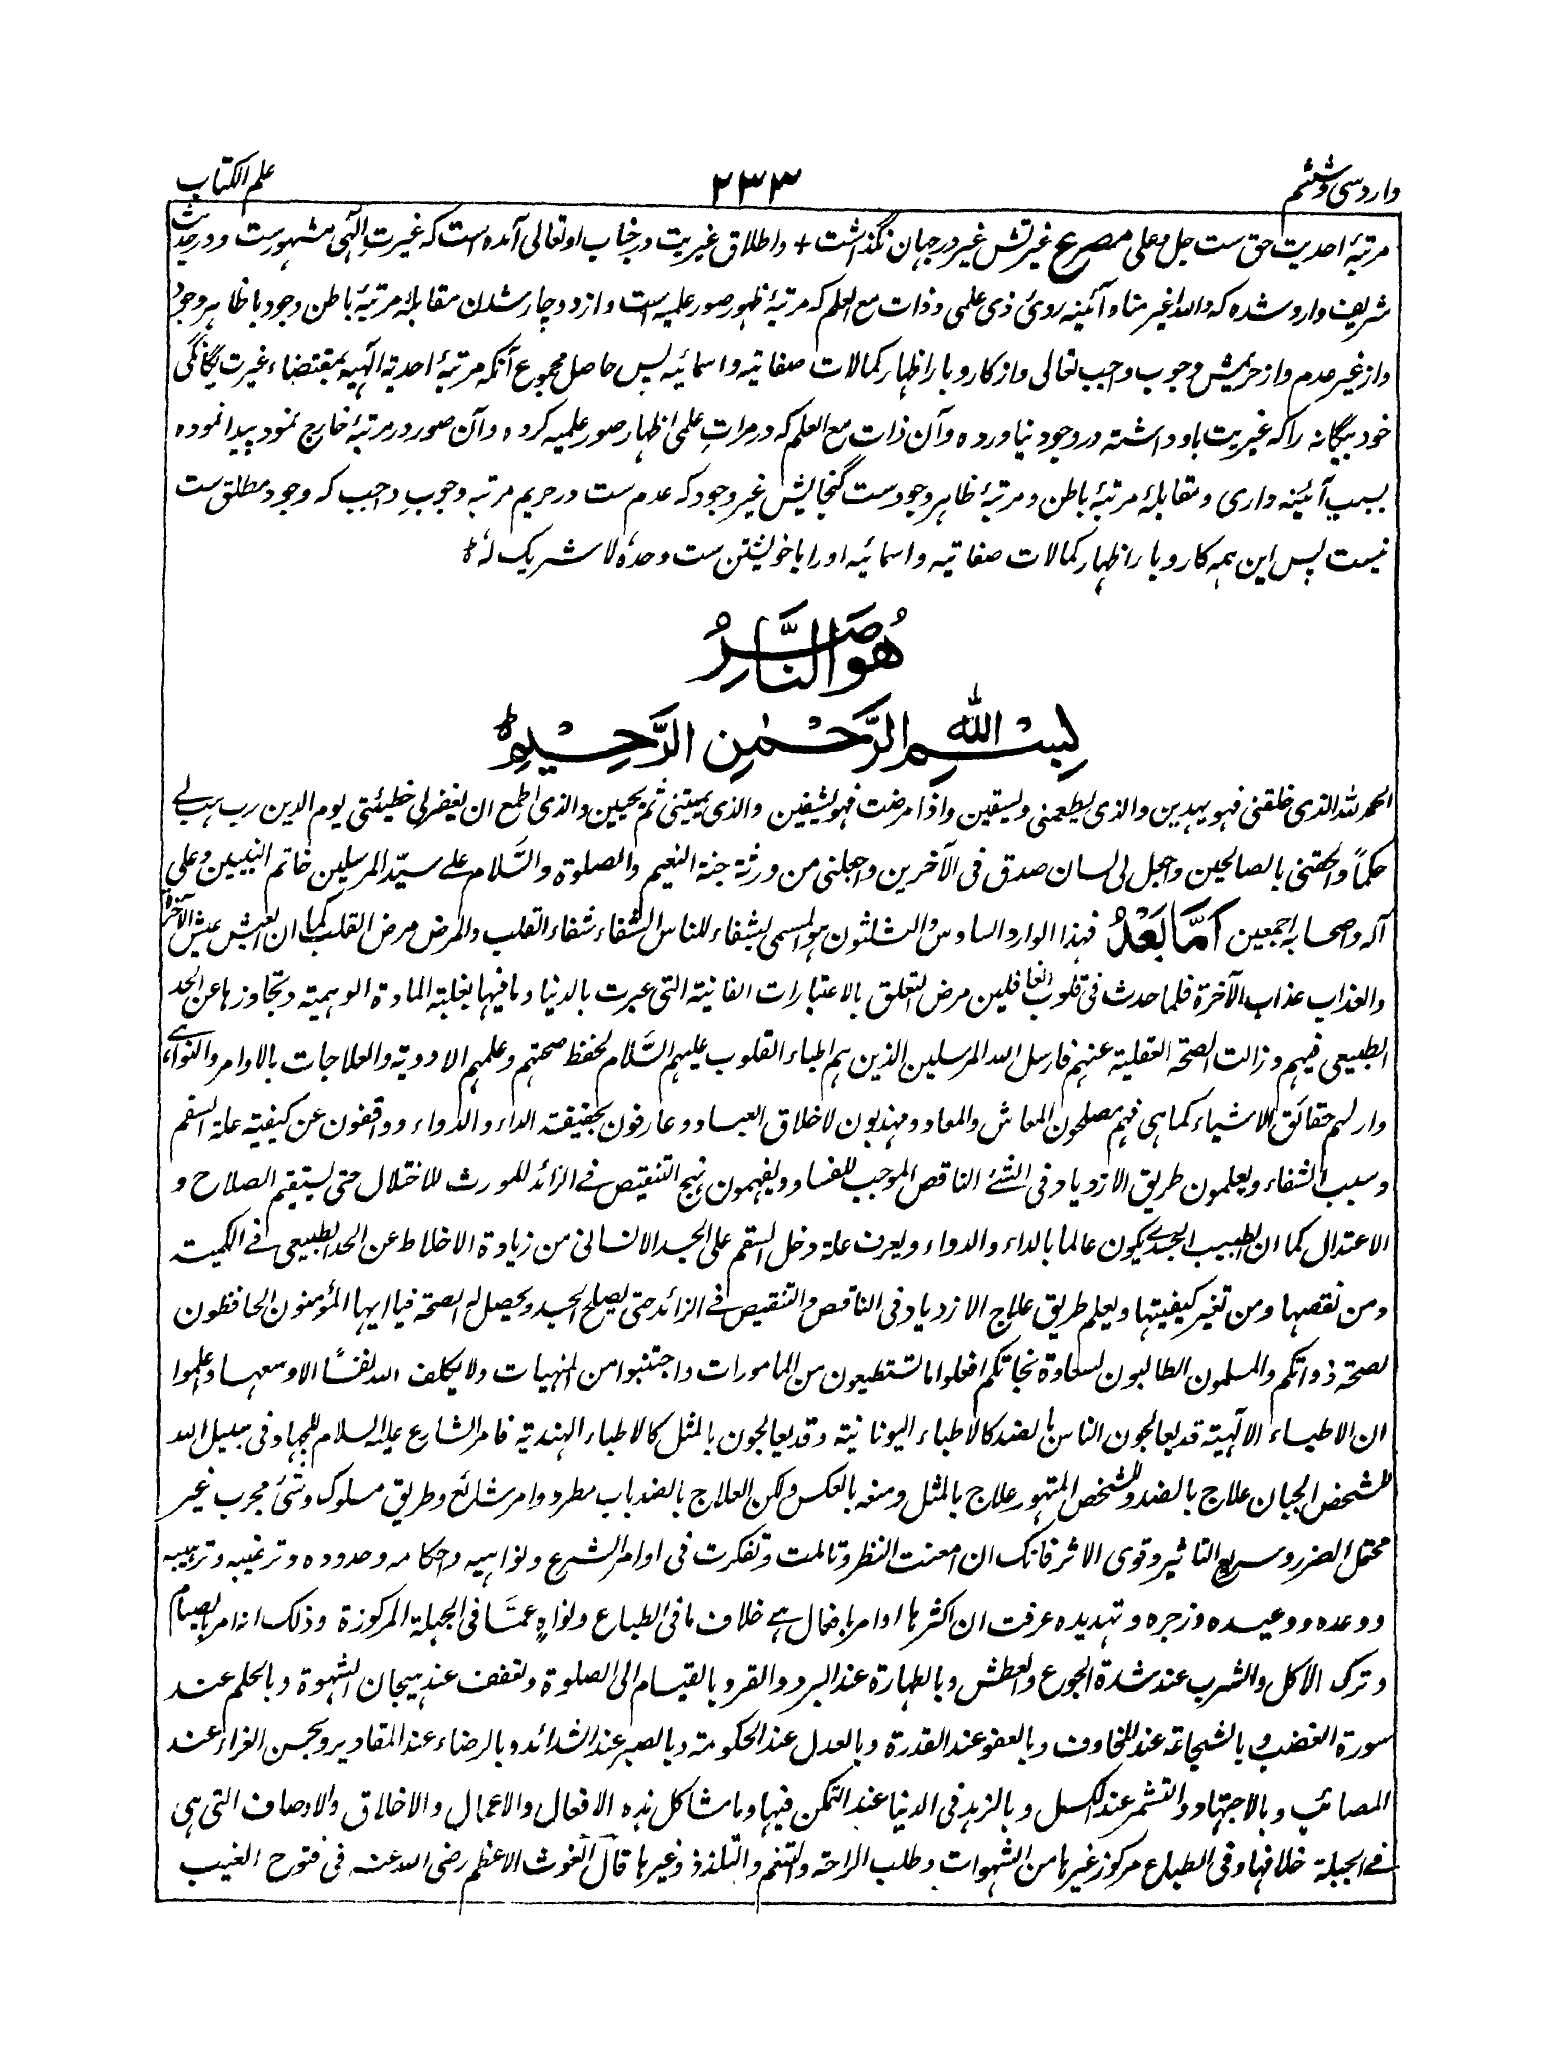 وارد سی و ششم
۲۳۳
علم الکتاب
مرتبۂ احدیت حق ست جل وعلی مصرع غیرتش غیر در جہان نگذاشت + واطلاق غیریت در جناب او تعالی آمدہ است کہ غیرتِ الٰہی مشہورست و در حدیث
شریف وارد شدہ کہ واللہ اغیر منا و آئینہ روئ ذی علمی و ذات مع العلم کہ مرتبۂ ظہور صور علمیہ است و از دوچار شدن مقابلۂ مرتبۂ باطن وجود با ظاہر وجود
و از غیر عدم و از حریمش وجوب واجب تعالی و از کاروبار اظہار کمالات صفاتیہ و اسمائیہ پس حاصل مجموع آنکہ مرتبۂ احدیہ الٰہیہ بمقتضاء غیرت یگانگی
خود بیگانہ را کہ غیریت باو داشتہ در وجود نیاوردہ و آن ذات مع العلم کہ در مرات علمی اظہار صور علمیہ کردہ و آن صور در مرتبۂ خارج نمود پیدا نمودہ
بسبب آئینہ داری و مقابلۂ مرتبۂ باطن و مرتبۂ ظاہر وجودست گنجایش غیر وجود کہ عدم ست در حریم مرتبہ وجوبِ واجب کہ وجود مطلق ست
نیست پس این ہمہ کاروبار اظہار کمالات صفاتیہ و اسمائیہ اورا باخویشتن ست وحدہٗ لا شریک لہٗ ط
ھُوَ النَّاصِرُ
بِسْمِ اللهِ الرَّحْمٰنِ الرَّحِیْمِ ط
الحمد للہ الذی خلقنی فہو یہدین والذی یطعمنی ویسقین واذا مرضت فہو یشفین والذی یمیتنی ثم یحیین والذی اطمع ان یغفر لی خطیئتی یوم الدین رب ہب لے
حکماً والحقنی بالصالحین واجعل لی لسان صدق فی الآخرین واجعلنی من ورثۃ جنۃ النعیم والصلوۃ والسَّلام علے سیّد المرسلین خاتم النبیین وعلی
آلہ واصحابہ اجمعین اَمَّا بَعْدُ فہذا الوارد السادس والثلثون ہو المسمی بشفاء للناس الشفاء شفاء القلب والمرض مرض القلب کما ان العیش عیش الآخرۃ
والعذاب عذاب الآخرۃ فلما حدث فی قلوب الغافلین مرض التعلق بالاعتبارات الفانیۃ التی عبرت بالدنیا وما فیہا بغلبۃ المادۃ الوہمیۃ وتجاوزہا عن الحد
الطبیعی فیہم وزالت الصحۃ العقلیۃ عنہم فارسل اللہ المرسلین الذین ہم اطباء القلوب علیہم السَّلام لحفظ صحتہم وعلمہم الادویۃ والعلاجات بالاوامر والنواہے
وارلہم حقائق الاشیاء کما ہی فہم مصلحون المعاش والمعاد ومہذبون لاخلاق العباد وعارفون بحقیقۃ الداء والدواء وواقفون عن کیفیۃ علۃ السقم
وسبب الشفاء ویعلمون طریق الازدیاد فی الشئ الناقص الموجب للفساد ویفہمون نہج التنقیص فے الزائد للمورث للاختلال حتی یستقیم الصلاح و
الاعتدال کما ان الطبیب الجسدے یکون عالما بالداء والدواء ویعرف علۃ دخل السقم علی الجسد الانسانی من زیادۃ الاخلاط عن الحد الطبیعی فے الکمیۃ
ومن نقصہا ومن تغیر کیفیتہا ویعلم طریق علاج الازدیاد فی الناقص والتنقیص فے الزائد حتی یصلح الجسد ویحصل لہ الصحۃ فیا ایہا المؤمنون الحافظون
لصحۃ ذواتکم والمسلمون الطالبون لسعادۃ نجاتکم افعلوا ما تستطیعون من المامورات واجتنبوا من المنہیات ولا یکلف اللہ نفسًا الا وسعہا واعلموا
ان الاطباء الالٰہیۃ قد یعالجون الناس بالضد کالاطباء الیونانیۃ وقد یعالجون بالمثل کالاطباء الہندیۃ فامر الشارع علیہ السلام للجہاد فی سبیل اللہ
للشخص الجبان علاج بالضد وللشخص المتہور علاج بالمثل ومنعہ بالعکس ولکن العلاج بالضد باب مطرد وامر شائع وطریق مسلوک وشئ مجرب غیر
محتمل الضرر وسریع التاثیر وقوی الاثر فانک ان امعنت النظر وتاملت وتفکرت فی اوامر الشرع ونواہیہ واحکامہ وحدودہ وترغیبہ وترہیبہ
ووعدہ ووعیدہ وزجرہ وتہدیدہ عرفت ان اکثرہا اوامر بافعال ہے خلاف ما فی الطباع ونواہٍ عمّا فی الجبلۃ المرکوزۃ وذلک انہ امر بالصیام
وترک الاکل والشرب عند شدۃ الجوع والعطش وبالطہارۃ عند البرد والقر وبالقیام الی الصلوۃ وتعفف عند ہیجان الشہوۃ وبالحلم عند
سورۃ الغضب وبالشجاعۃ عند المخاوف وبالعفو عند القدرۃ وبالعدل عند الحکومۃ وبالصبر عند الشدائد وبالرضاء عند المقادیر وبحسن العزاء عند
المصائب وبالاجتہاد والتشمر عند الکسل وبالزہد فی الدنیا عند التمکن فیہا وما شاکل ہذہ الافعال والاعمال والاخلاق والاوصاف التی ہی
فے الجبلۃ خلافہا وفی الطباع مرکوز غیرہا من الشہوات وطلب الراحۃ والتنعم والتلذذ وغیرہا قال الغوث الاعظم رضی اللہ عنہ فی فتوح الغیب